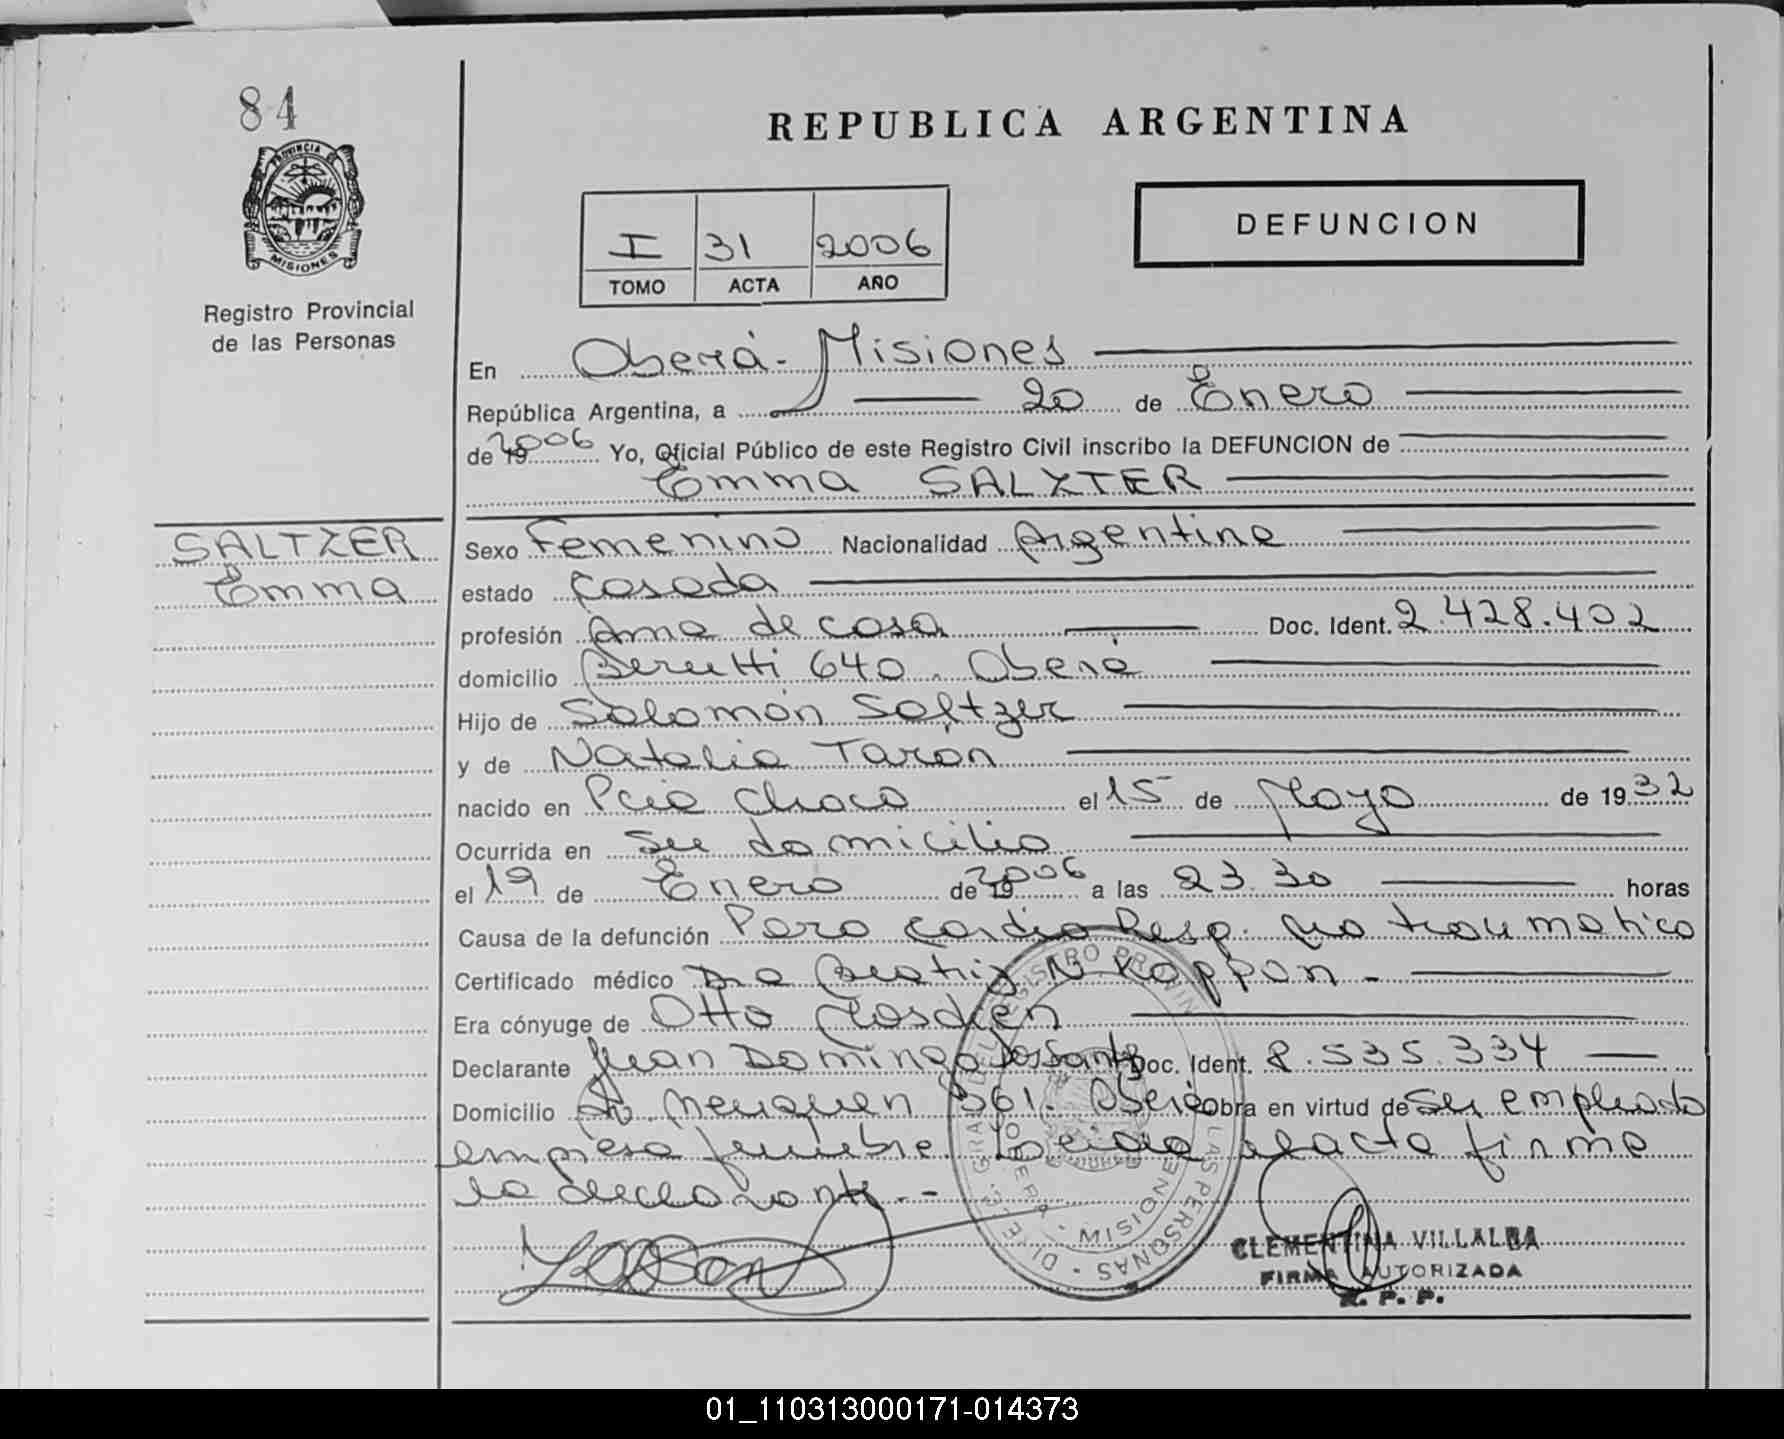 84
PROVINCIA DE
MISIONES
Registro Provincial
de las Personas
REPUBLICA ARGENTINA
I 31 2006
TOMO ACTA AÑO
DEFUNCION
En Oberá - Misiones
República Argentina, a 20 de Enero
de 19 2006 Yo, Oficial Público de este Registro Civil inscribo la DEFUNCION de
Emma SALZTER
SALTZER
Emma
Sexo Femenino Nacionalidad Argentina
estado Casada
profesión Ama de casa Doc. Ident. 2.428.402
domicilio Berutti 640. Oberá
Hijo de Salomón Saltzer
y de Natalia Tarón
nacido en Pcia Chaco el 15 de Mayo de 1932
Ocurrida en su domicilio
el 19 de Enero de 19 2006 a las 23.30 horas
Causa de la defunción Paro Cardio Resp. No traumatico
Certificado médico Dra Beatriz N Kappan -
Era cónyuge de Otto
Declarante Juan Domingo Dos Santos Doc. Ident. 8.535.334
Domicilio Neuquen 361. Oberá Obra en virtud de ser empleado
empresa funebre. Leida el acta firma
lo declarante. -
CLEMENTINA VILLALBA
FIRMA AUTORIZADA
R. P. P.
01_110313000171-014373